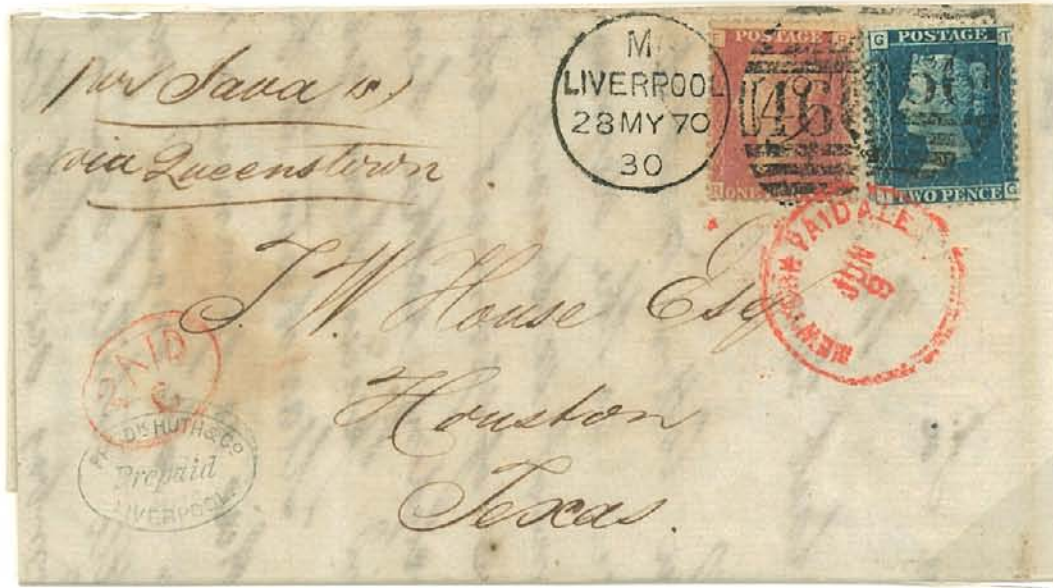 per Java (s)
via Queenstown.
M
LIVERPOOL
28 MY 70
30
466
POSTAGE
ONE
G POSTAGE T
T TWO PENCE G
NEW YORK PAID ALL
JUN
PAID
T. W. House Esq
Houston
Texas.
FREDK HUTH & Co
Prepaid
LIVERPOOL